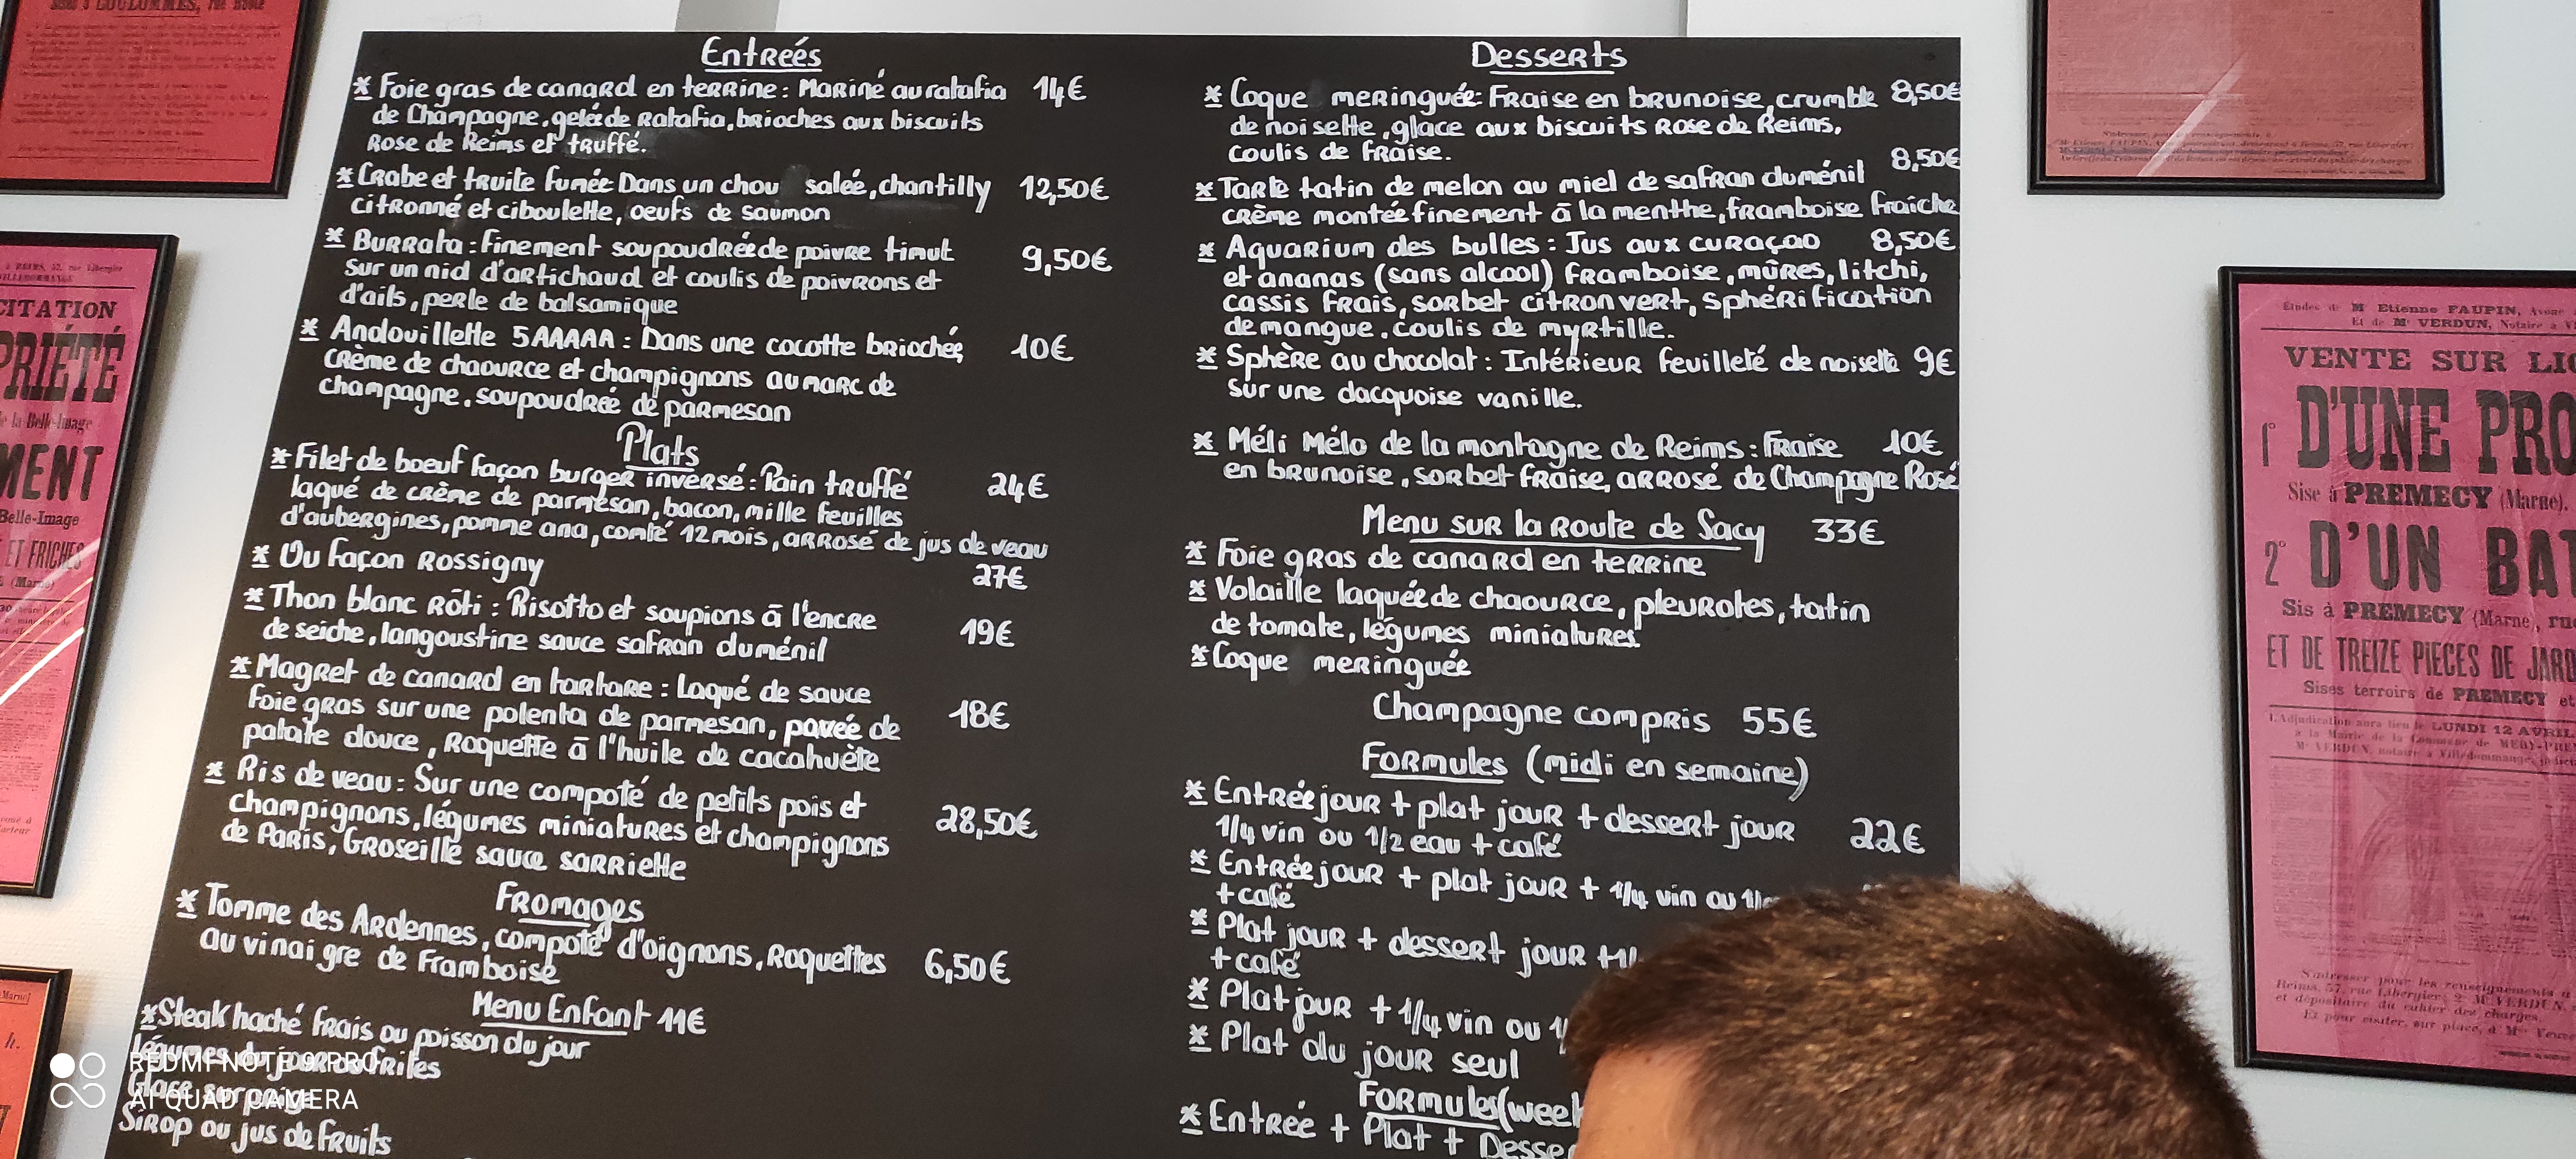 Entreés
* Foie gras de canard en terrine : Mariné au ratafia 14€
de Champagne, gelée de Ratafia, brioches aux biscuits
Rose de Reims et truffé.
* Crabe et truite fumée Dans un chou salée, chantilly 12,50€
citronné et ciboulette, oeufs de saumon
* Burrata : finement soupoudrée de poivre timut 9,50€
sur un nid d'artichaud et coulis de poivrons et
d'ails, perle de balsamique
* Andouillette 5AAAAA : Dans une cocotte briochée, 10€
crème de chaource et champignons au marc de
champagne, soupoudrée de parmesan
Plats
* Filet de boeuf façon burger inversé : Pain truffé 24€
laqué de crème de parmesan, bacon, mille feuilles
d'aubergines, pomme ana, comté 12 mois, arrosé de jus de veau
* Ou façon Rossigny 27€
* Thon blanc rôti : Risotto et soupions à l'encre 19€
de seiche, langoustine sauce safran duménil
* Magret de canard en tartare : Laqué de sauce 18€
foie gras sur une polenta de parmesan, pavée de
patate douce, Roquette à l'huile de cacahuète
* Ris de veau : Sur une compoté de petits pois et 28,50€
champignons, légumes miniatures et champignons
de Paris, Groseille sauce sarriette
Fromages
* Tomme des Ardennes, compoté d'oignons, Roquettes 6,50€
au vinaigre de Framboise
Menu Enfant 11€
* Steak haché frais ou poisson du jour
légumes du jour ou frites
Glace surprige
Sirop ou jus de fruits
Desserts
* Coque meringuée : Fraise en brunoise, crumble 8,50€
de noisette, glace aux biscuits Rose de Reims,
coulis de fraise.
* Tarte tatin de melon au miel de safran duménil 8,50€
crème montée finement à la menthe, framboise fraîche
* Aquarium des bulles : Jus aux curaçao 8,50€
et ananas (sans alcool) framboise, mûres, litchi,
cassis frais, sorbet citron vert, sphérification
de mangue, coulis de myrtille.
* Sphère au chocolat : Intérieur feuilleté de noisette 9€
sur une dacquoise vanille.
* Méli Mélo de la montagne de Reims : Fraise 10€
en brunoise, sorbet fraise, arrosé de Champagne Rosé
Menu sur la Route de Sacy 33€
* Foie gras de canard en terrine
* Volaille laquée de chaource, pleurotes, tatin
de tomate, légumes miniatures
* Coque meringuée
Champagne compris 55€
Formules (midi en semaine)
* Entrée jour + plat jour + dessert jour 22€
1/4 vin ou 1/2 eau + café
* Entrée jour + plat jour + 1/4 vin ou
+ café
* Plat jour + dessert jour +
+ café
* Plat jour + 1/4 vin ou
* Plat du jour seul
Formules (week
* Entrée + Plat + Desse
CITATION
PRIÉTÉ
de la Belle-Image
MENT
Belle-Image
ET FRICHES
(Marne)
Etudes de Me Etienne FAUPIN, Avoué
Et de Me VERDUN, Notaire à
VENTE SUR LIC
1° D'UNE PRO
Sise à PREMECY (Marne),
2° D'UN BAT
Sis à PREMECY (Marne), rue
ET DE TREIZE PIECES DE JARD
Sises terroirs de PREMECY et
LUNDI 12 AVRIL
REDMI NOTE 9 PRO
AI QUAD CAMERA